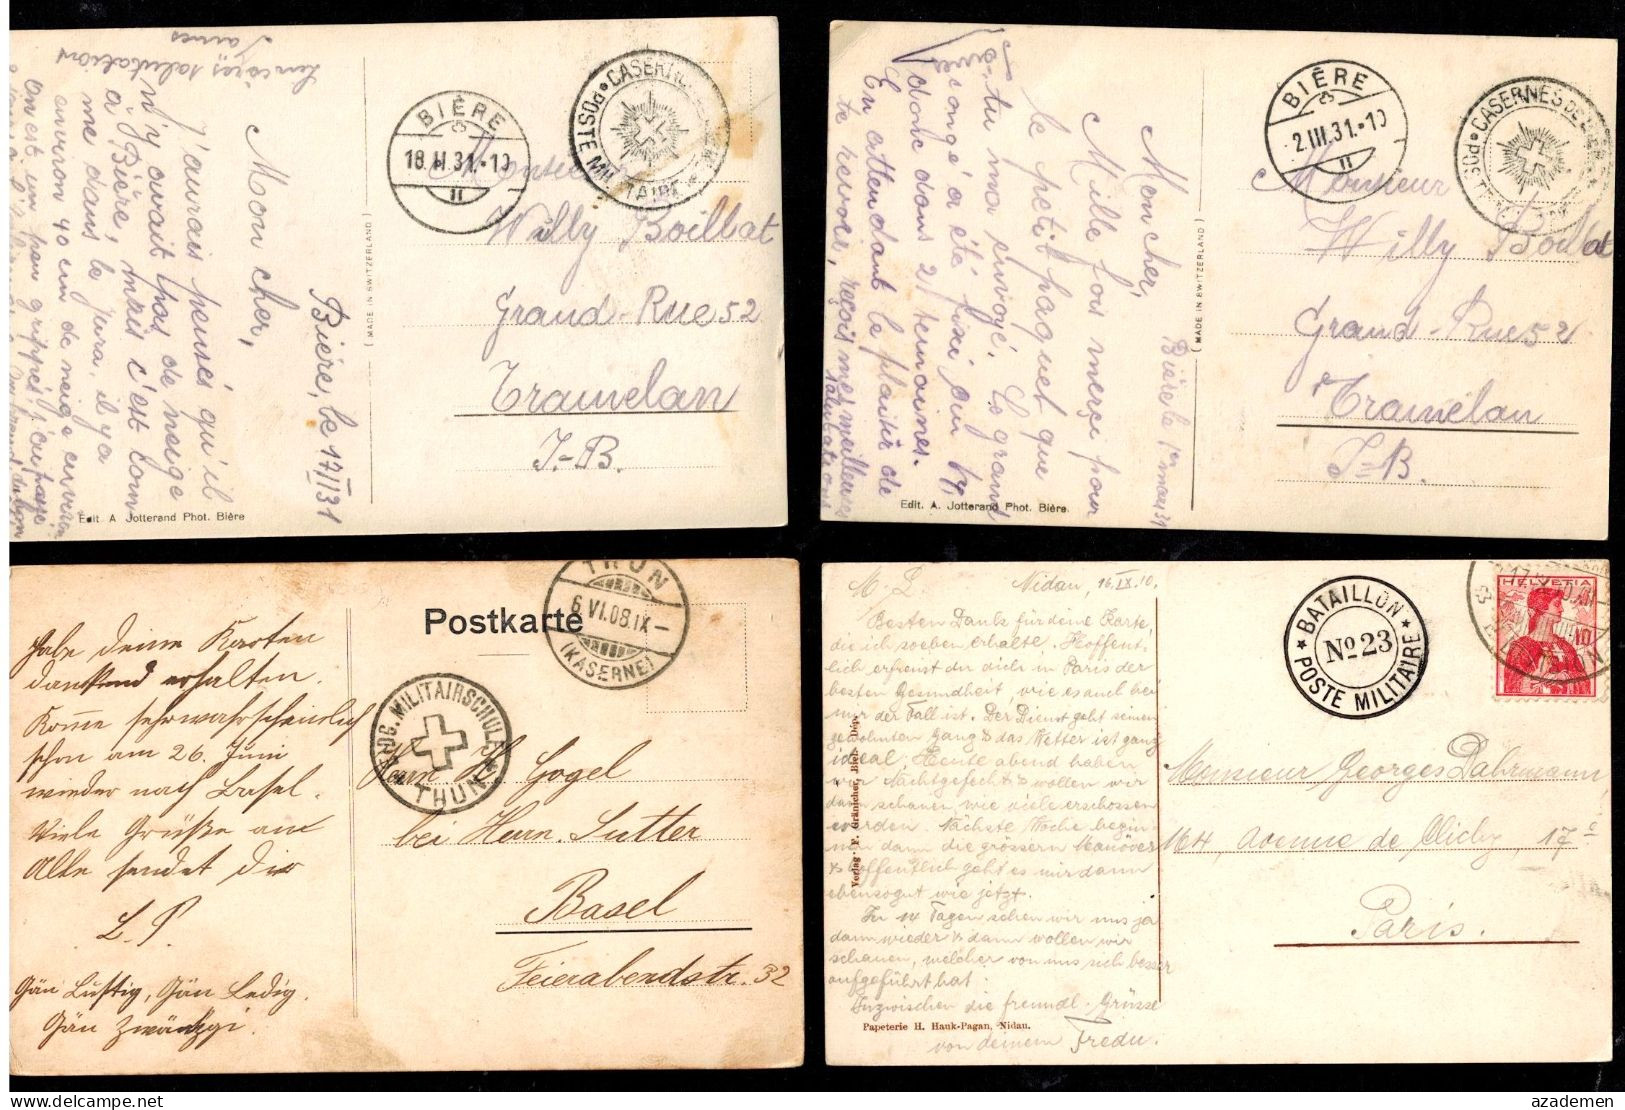 BIÈRE
18.II.31.-10
POSTE MILITAIRE
CASERNE
Monsieur
Willy Boillat
Grand-Rue 52
Tramelan
J.-B.
Bière, le 17 II 31
Mon cher,
J'aurais pensé qu'il
n'y avait pas de neige
à Bière, mais c'est com
me dans le Jura, il y a
environ 40 cm de neige environ
On est un peu grippés
Sincères salutations
James
( MADE IN SWITZERLAND )
Edit A Jotterand Phot. Bière
BIÈRE
2.III.31.-10
CASERNES DE BIÈRE
Monsieur
Willy Boillat
Grand-Rue 52
Tramelan
J.-B.
Bière le 1er mars 31
Mon cher,
Mille fois merci pour
le petit paquet que
tu m'a envoyé. Le grand
congé a été fixé au 14,
donc dans 2 semaines.
En attendant le plaisir de
te revoir, reçois mes meilleures
salutations
James
( MADE IN SWITZERLAND )
Edit. A. Jotterand Phot. Bière.
Postkarte
THUN
6.VI.08.IX-
(KASERNE)
EIDG. MILITAIRSCHULE
THUN
Habe deine Karten
dankend erhalten.
Komme sehr wahrscheinlich
schon am 26. Juni
wieder nach Basel.
Viele Grüße an
Alle sendet dir
L. P.
Gän Luftig, Gän Ledig,
Gän Zwänzgi.
Herrn H. Gogel
bei Herrn. Sutter
Basel
Feierabendstr. 32
M. L. Nidau, 16.IX.10.
Besten Dank für deine Karte,
die ich soeben erhalte. Hoffent-
lich erfreust du dich in Paris der
besten Gesundheit wie es auch bei
mir der Fall ist. Der Dienst geht seinen
gewohnten Gang & das Wetter ist ganz
ideal. Heute abend haben
wir Nachtgefecht & wollen wir
dann schauen, wie viele erschossen
werden. Nächste Woche begin-
nen dann die grössern Manöver
& hoffentlich geht es mir dann
ebensogut wie jetzt.
In 14 Tagen sehen wir uns ja
dann wieder & dann wollen wir
schauen, welcher von uns sich besser
aufgeführt hat.
Inzwischen die freundl. Grüsse
von deinem Fredu.
Verlag F. Gränicher, Biel. Dép.
Papeterie H. Hauk-Pagan, Nidau.
BATAILLON
No 23
POSTE MILITAIRE
HELVETIA
10
Monsieur Georges Dahrmann
164, avenue de Clichy, 17e
Paris.
azademen